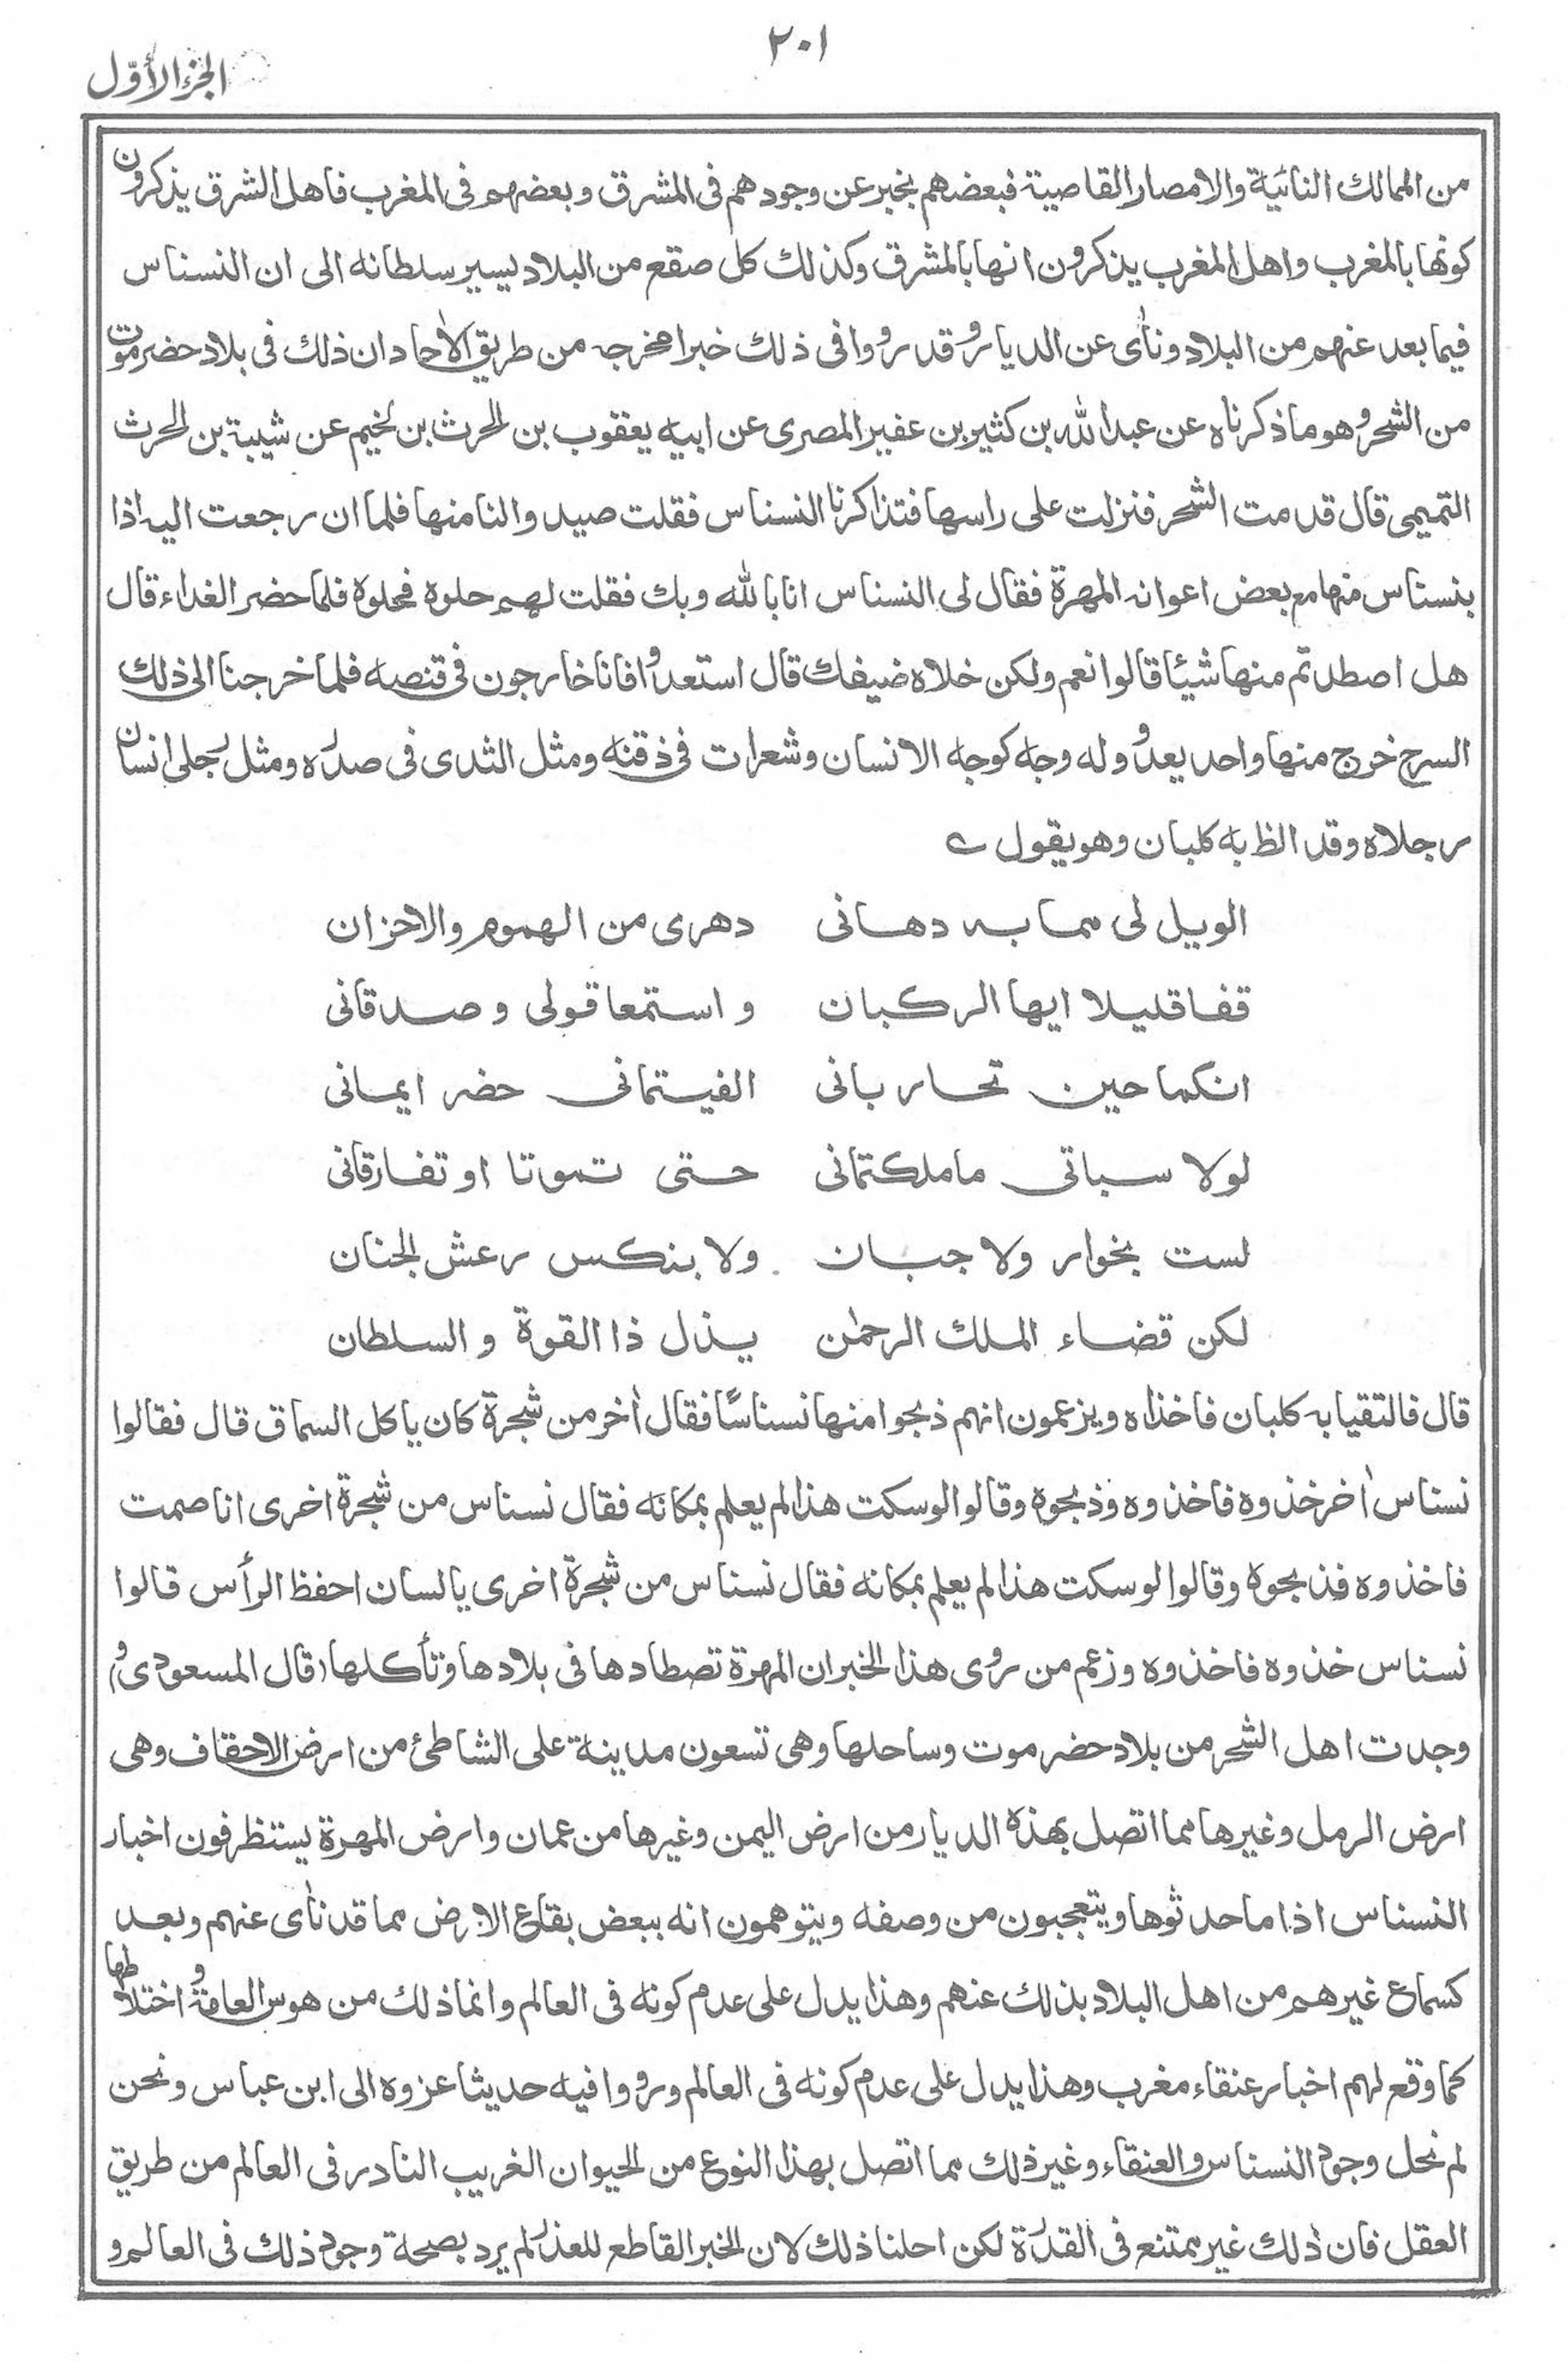 ٢٠١
الجزء الأوّل
من الممالك النائية والامصار القاصية فبعضهم يخبر عن وجودهم فى المشرق وبعضهم فى المغرب فاهل الشرق يذكرون
كونها بالمغرب واهل المغرب يذكرون انها بالمشرق وكذلك كل صقع من البلاد يسير سلطانه الى ان النسناس
فيما بعد عنهم من البلاد ونأى عن الديار وقد رووا فى ذلك خبرا مخرجه من طريق الأحاد ان ذلك فى بلاد حضرموت
من الشحر وهو ما ذكرناه عن عبد الله بن كثير بن عفير المصرى عن ابيه يعقوب بن الحرث بن نخيم عن شيبة بن الحرث
التميمى قال قدمت الشحر فنزلت على راسها فتذاكرنا النسناس فقلت صيد والنا منها فلما ان رجعت اليه اذا
بنسناس منها مع بعض اعوانه المهرة فقال لى النسناس انا بالله وبك فقلت لهم حلوه فحلوه فلما حضر الغداء قال
هل اصطدتم منها شيئا قالوا نعم ولكن خلاه ضيفك قال استعدوا فانا خارجون فى قنصه فلما خرجنا الى ذلك
السرح خرج منها واحد يعدو وله وجه كوجه الانسان وشعرات فى ذقنه ومثل الثدى فى صدره ومثل رجلى انسان
رجلاه وقد الظ به كلبان وهو يقول
الويل لى مما به دهانى دهرى من الهموم والاحزان
قفا قليلا ايها الركبان واستمعا قولى وصدقانى
انكما حين تحاربانى الفيتمانى حضر ايمانى
لولا سباتى ما ملكتمانى حتى تموتا او تفارقانى
لست بخوار ولا جبان ولا بنكس رعش الجنان
لكن قضاء الملك الرحمٰن يذل ذا القوة والسلطان
قال فالتقيا به كلبان فاخذاه ويزعمون انهم ذبحوا منها نسناسًا فقال أخر من شجرة كان ياكل السماق قال فقالوا
نسناس أخر خذوه فاخذوه وذبحوه وقالوا لو سكت هذا لم يعلم بمكانه فقال نسناس من شجرة اخرى انا صمت
فاخذوه فذبحوه وقالوا لو سكت هذا لم يعلم بمكانه فقال نسناس من شجرة اخرى يا لسان احفظ الرأس قالوا
نسناس خذوه فاخذوه وزعم من روى هذا الخبر ان المهرة تصطادها فى بلادها وتأكلها (قال المسعودى) و
وجدت اهل الشحر من بلاد حضرموت وساحلها وهى تسعون مدينة على الشاطئ من ارض الاحقاف وهى
ارض الرمل وغيرها مما اتصل بهذه الديار من ارض اليمن وغيرها من عمان وارض المهرة يستظرفون اخبار
النسناس اذا ما حدثوها ويتعجبون من وصفه ويتوهمون انه ببعض بقاع الارض مما قد نأى عنهم وبعد
كسماع غيرهم من اهل البلاد بذلك عنهم وهذا يدل على عدم كونه فى العالم وانما ذلك من هوس العامة واختلاطها
كما وقع لهم اخبار عنقاء مغرب وهذا يدل على عدم كونه فى العالم ورووا فيه حديثا عزوه الى ابن عباس ونحن
لم نحل وجود النسناس والعنقاء وغير ذلك مما اتصل بهذا النوع من الحيوان الغريب النادر فى العالم من طريق
العقل فان ذلك غير ممتنع فى القدرة لكن احلنا ذلك لان الخبر القاطع للعذر لم يرد بصحة وجود ذلك فى العالم و